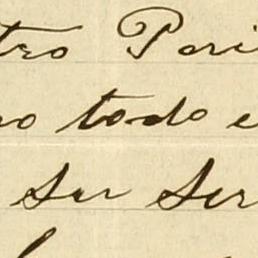 tro Pari
o todo e
su ser